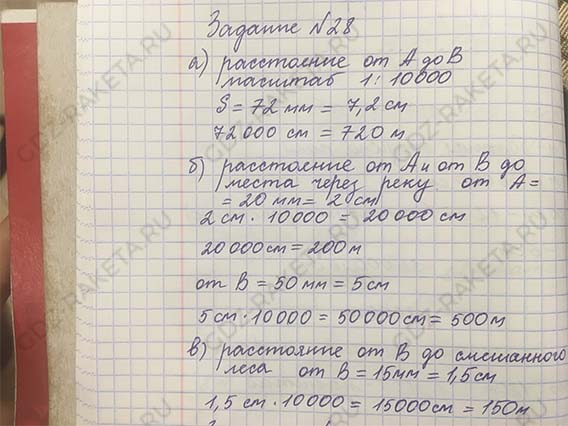 Задание №28
а) расстояние от А до В
масштаб 1:10000
S = 72 мм = 7,2 см
72000 см = 720 м
б) расстояние от А и от В до
места через реку от А =
= 20 мм = 2 см
2 см · 10000 = 20000 см
20000 см = 200 м
от В = 50 мм = 5 см
5 см · 10000 = 50000 см = 500 м
в) расстояние от В до смешанного
леса от В = 15 мм = 1,5 см
1,5 см · 10000 = 15000 см = 150 м
GDZ-RAKETA.RU